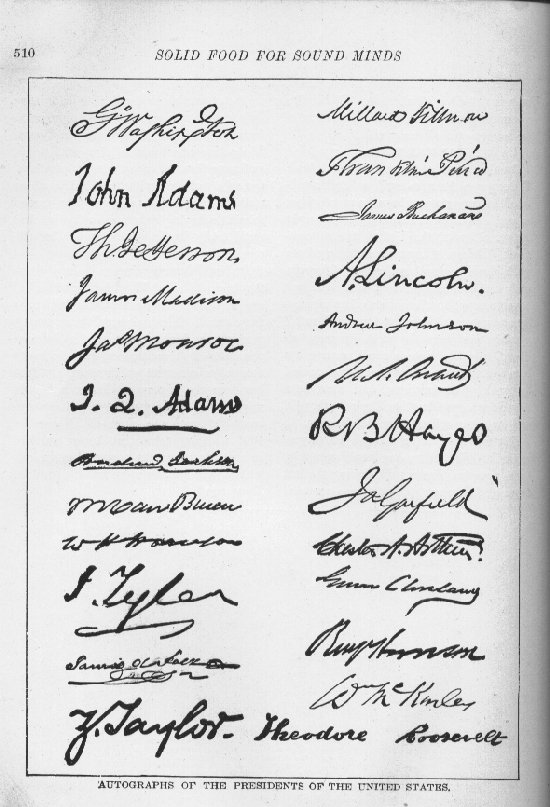 510
SOLID FOOD FOR SOUND MINDS
G Washington
John Adams
Th. Jefferson.
James Madison
Jas Monroe
J. Q. Adams
Andrew Jackson
M Van Buren
W H Harrison
J. Tyler
James K Polk
Z. Taylor.
Millard Fillmore
Franklin Pierce
James Buchanan
A. Lincoln.
Andrew Johnson
U. S. Grant
R B Hayes
J A Garfield
Chester A. Arthur.
Grover Cleveland
Benj Harrison
Wm McKinley
Theodore Roosevelt
AUTOGRAPHS OF THE PRESIDENTS OF THE UNITED STATES.